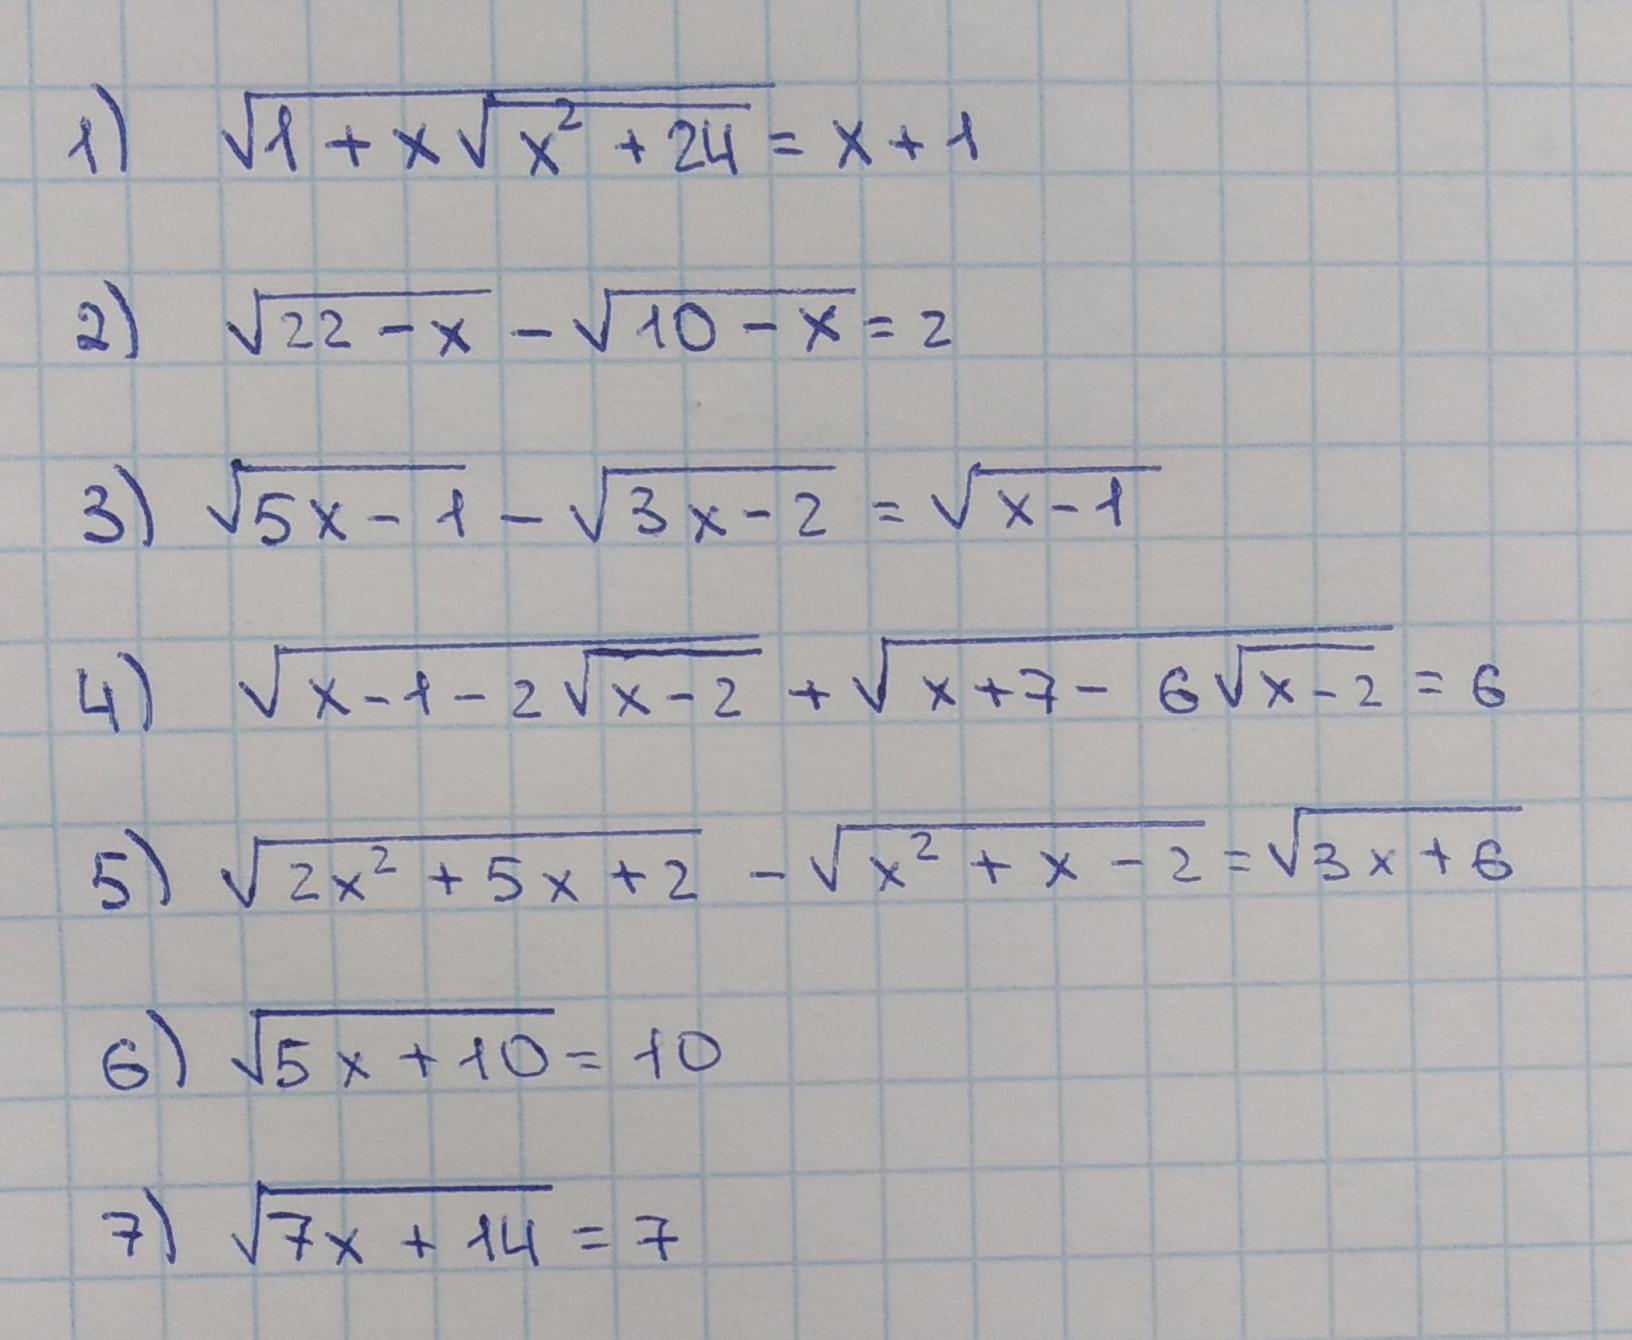 1) √(1 + x√(x² + 24)) = x + 1
2) √(22 - x) - √(10 - x) = 2
3) √(5x - 1) - √(3x - 2) = √(x - 1)
4) √(x - 1 - 2√(x - 2)) + √(x + 7 - 6√(x - 2)) = 6
5) √(2x² + 5x + 2) - √(x² + x - 2) = √(3x + 6)
6) √(5x + 10) = 10
7) √(7x + 14) = 7